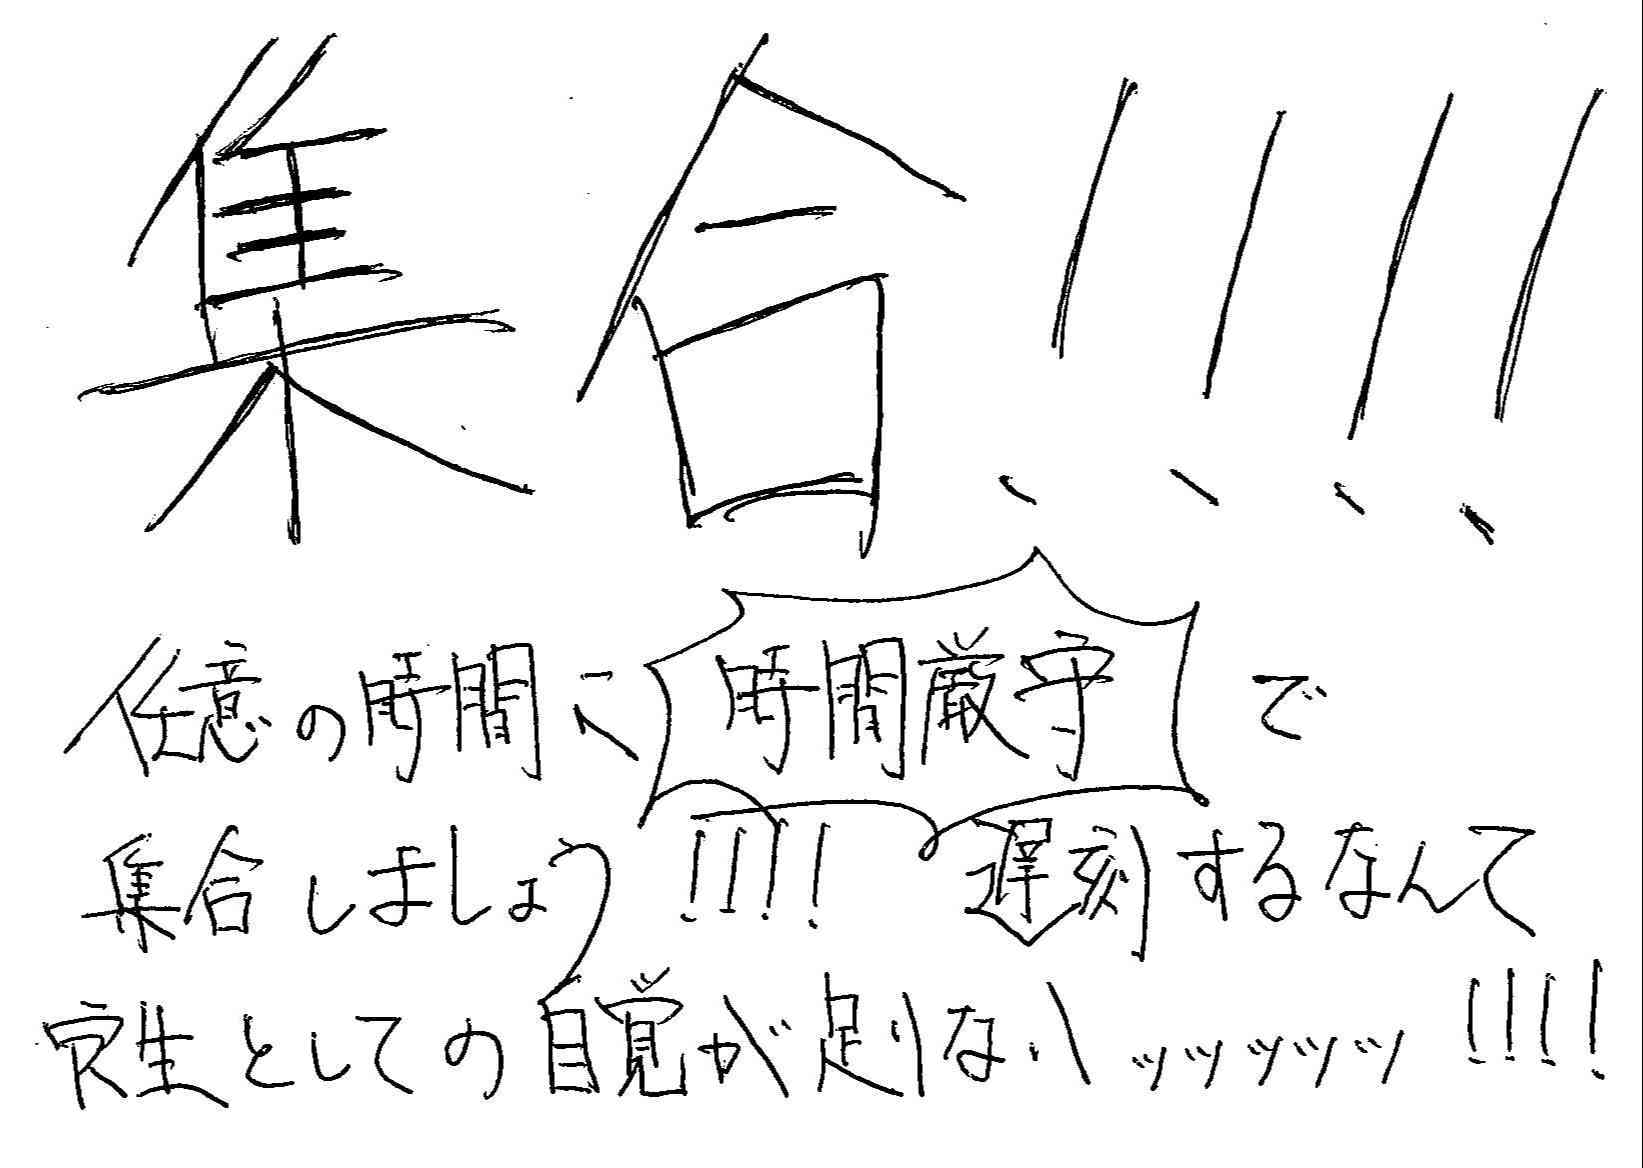 集合!!!!
任意の時間に時間厳守で
集合しましょう!!!! 遅刻するなんて
穴生としての自覚が足りないッッッッッ!!!!